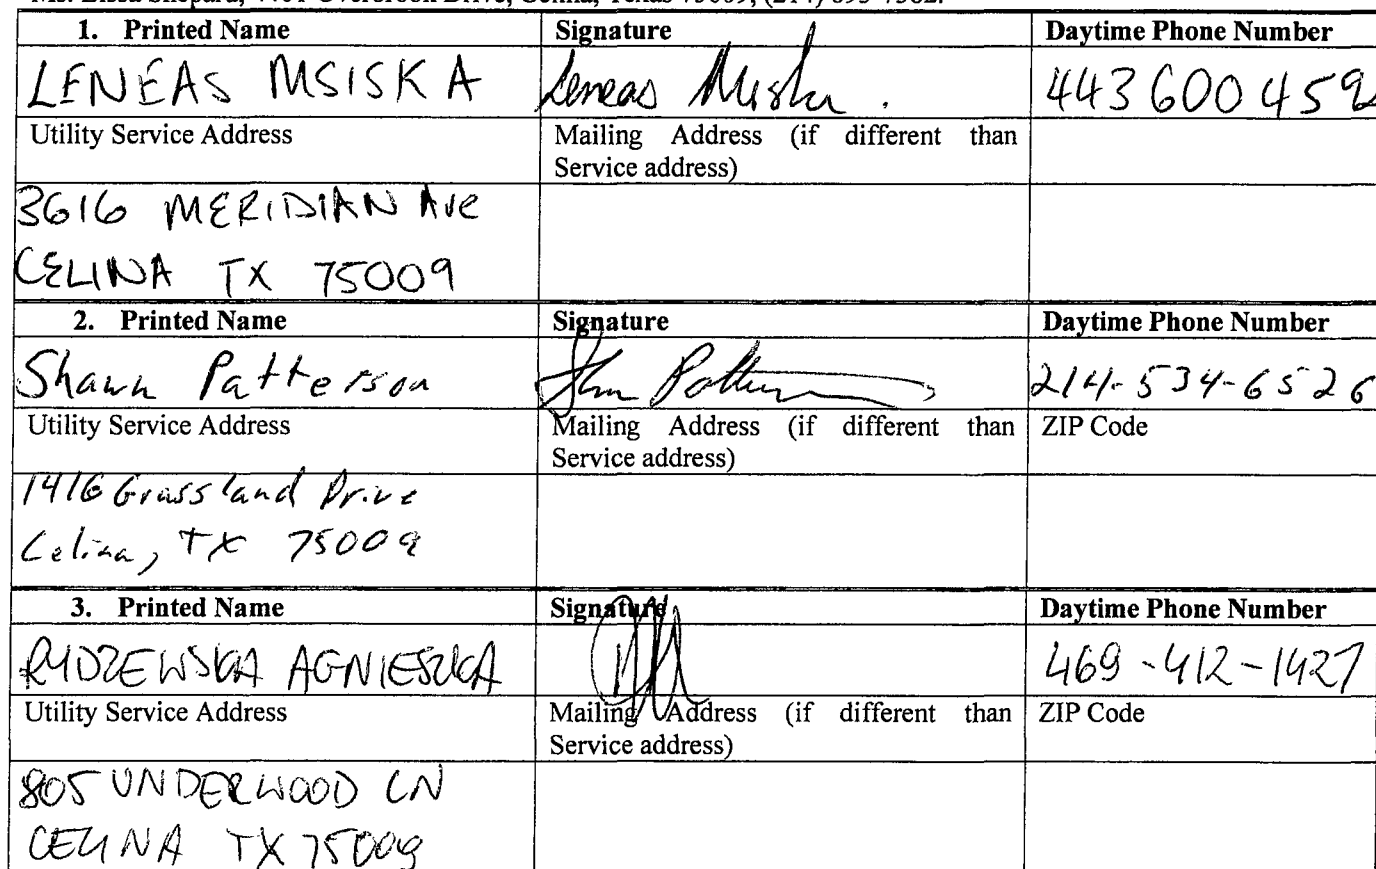 1. Printed Name Signature Daytime Phone Number
LENEAS MSISKA Leneas Msiska. 443600459
Utility Service Address Mailing Address (if different than Service address)
3616 MERIDIAN Ave
CELINA TX 75009
2. Printed Name Signature Daytime Phone Number
Shawn Patterson 214-534-6526
Utility Service Address Mailing Address (if different than Service address) ZIP Code
1416 Grassland Drive
Celina, TX 75009
3. Printed Name Signature Daytime Phone Number
RYDZEWSKA AGNIESZKA 469-412-1427
Utility Service Address Mailing Address (if different than Service address) ZIP Code
805 UNDERWOOD LN
CELINA TX 75009